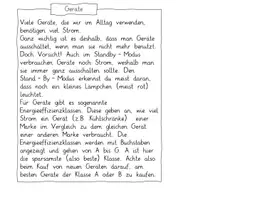 Geräte
Viele Geräte, die wir im Alltag verwenden,
benötigen viel Strom.
Ganz wichtig ist es deshalb, dass man Geräte
ausschaltet, wenn man sie nicht mehr benutzt.
Doch Vorsicht! Auch im Standby - Modus
verbrauchen Geräte noch Strom, weshalb man
sie immer ganz ausschalten sollte. Den
Stand - By - Modus erkennst du meist daran,
dass noch ein kleines Lämpchen (meist rot)
leuchtet.
Für Geräte gibt es sogenannte
Energieeffizienzklassen. Diese geben an, wie viel
Strom ein Gerät (z.B. Kühlschränke) einer
Marke im Vergleich zu dem gleichen Gerät
einer anderen Marke verbraucht. Die
Energieeffizienzklassen werden mit Buchstaben
angezeigt und gehen von A bis G. A ist hier
die sparsamste (also beste) Klasse. Achte also
beim Kauf von neuen Geräten darauf, am
besten Geräte der Klasse A oder B zu kaufen.